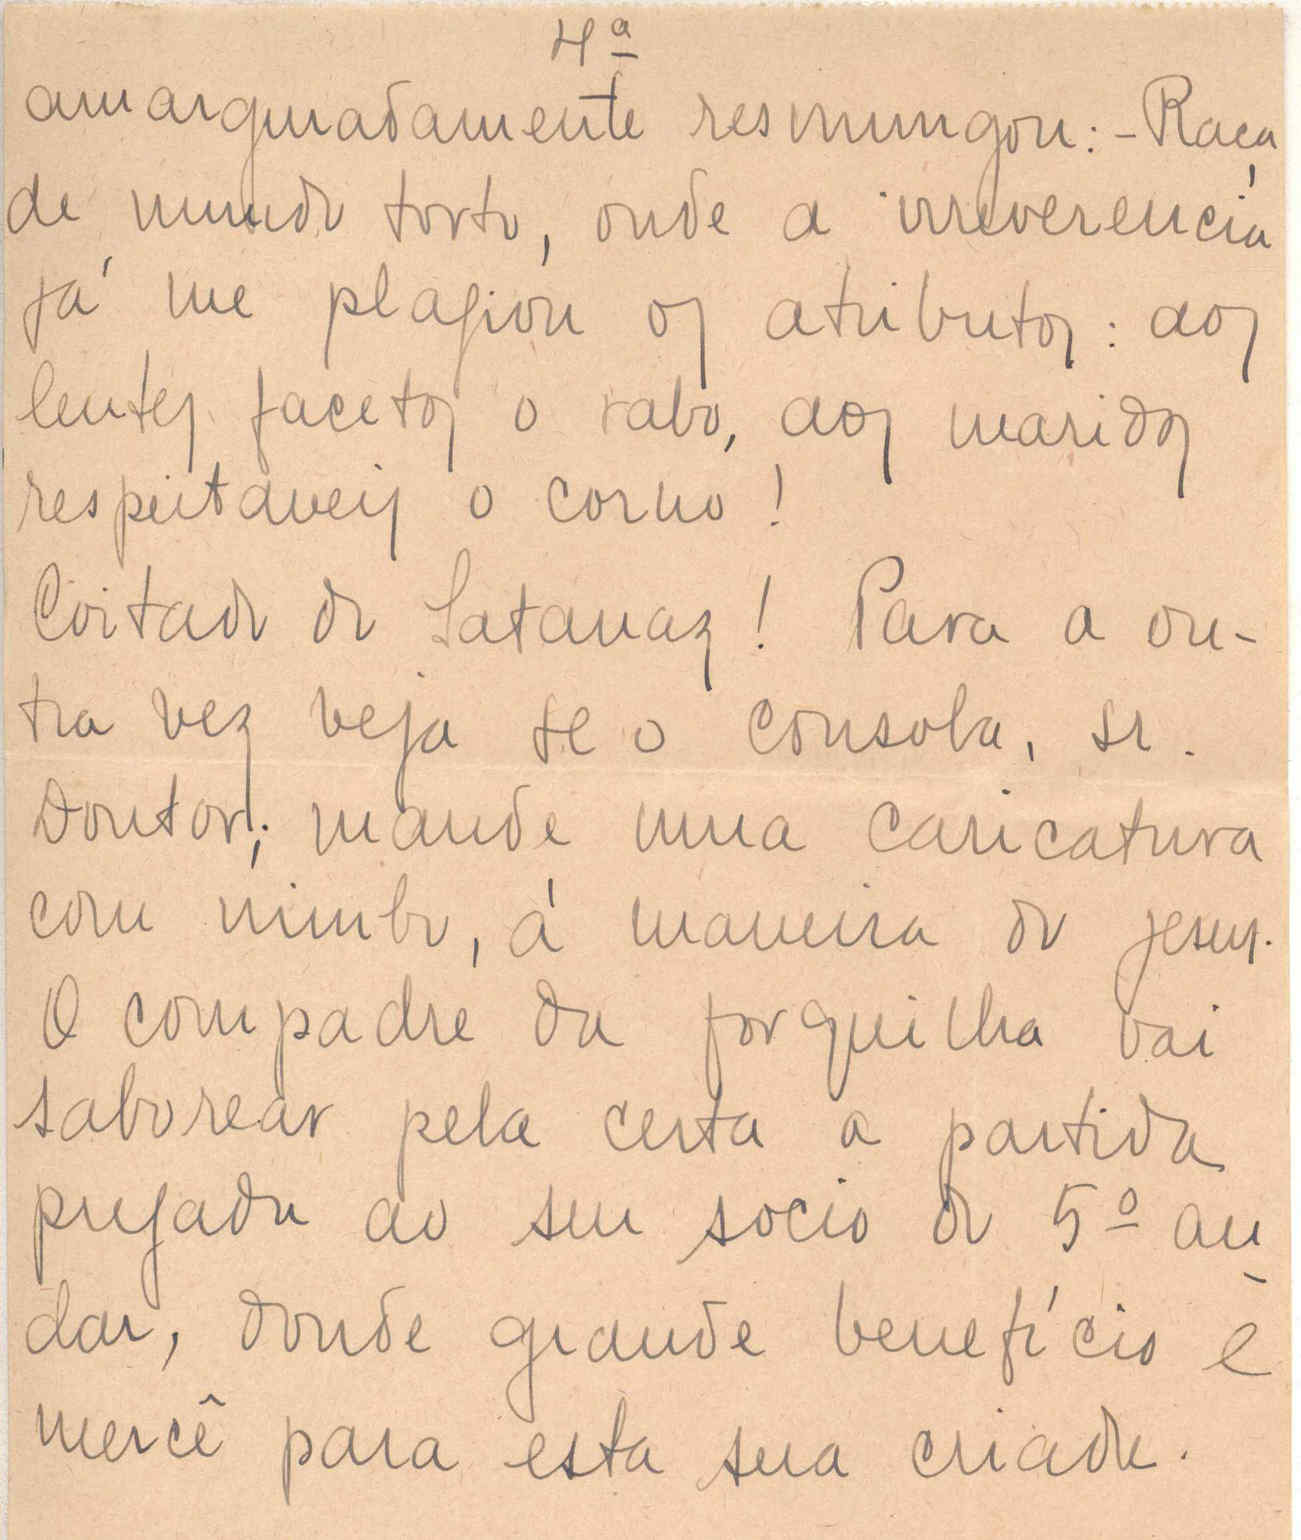 4ª
amarguradamente resmungou: - Raça
de mundo torto, onde a irreverencia
já me plagiou os atributos: aos
lentes facetos o rabo, aos maridos
respeitaveis o corno!
Coitado do Satanaz! Para a ou-
tra vez veja se o consola, sr.
Doutor; mande uma caricatura
com nimbo, á maneira do Jesus.
O compadre da forquilha vai
saborear pela certa a partida
pregada ao seu socio do 5º an-
dar, donde grande benefício e
mercê para esta sua criada.